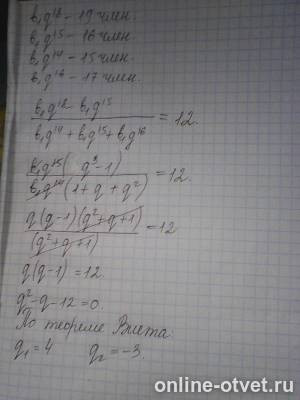 b₁q¹⁸ - 19 член.
b₁q¹⁵ - 16 член.
b₁q¹⁴ - 15 член.
b₁q¹⁶ - 17 член.
b₁q¹⁸ - b₁q¹⁵
b₁q¹⁴ + b₁q¹⁵ + b₁q¹⁶ = 12.
b₁q¹⁵ ( q³ - 1)
b₁q¹⁴ (1 + q + q²) = 12.
q (q - 1) (q² + q + 1)
(q² + q + 1) = 12
q (q - 1) = 12.
q² - q - 12 = 0.
По теореме Виета:
q₁ = 4 q₂ = -3.
online-otvet.ru